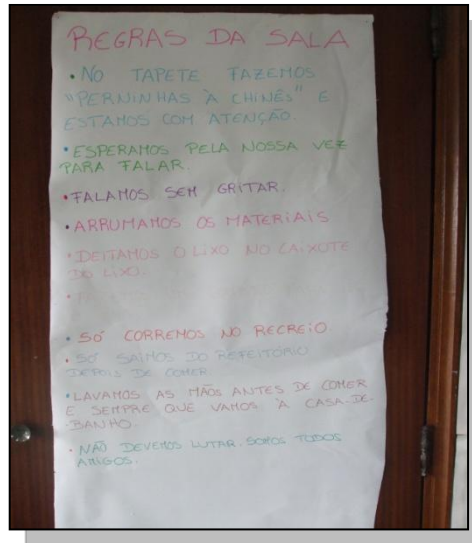 REGRAS DA SALA
• NO TAPETE FAZEMOS
"PERNINHAS À CHINÊS" E
ESTAMOS COM ATENÇÃO.
• ESPERAMOS PELA NOSSA VEZ
PARA FALAR.
• FALAMOS SEM GRITAR.
• ARRUMAMOS OS MATERIAIS
• DEITAMOS O LIXO NO CAIXOTE
DO LIXO.
• SÓ CORREMOS NO RECREIO.
• SÓ SAÍMOS DO REFEITÓRIO
DEPOIS DE COMER.
• LAVAMOS AS MÃOS ANTES DE COMER
E SEMPRE QUE VAMOS À CASA-DE-
-BANHO.
• NÃO DEVEMOS LUTAR. SOMOS TODOS
AMIGOS.